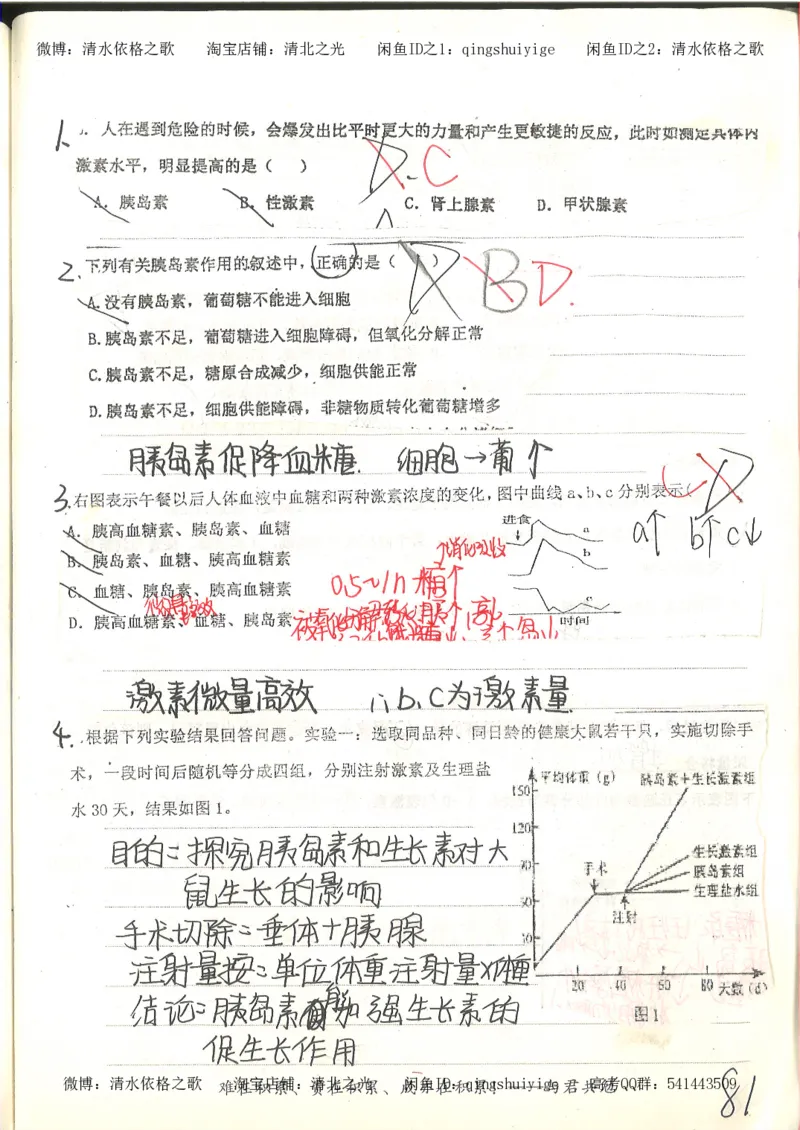 微博：清水依格之歌 淘宝店铺：清北之光 闲鱼ID之1：qingshuiyige 闲鱼ID之2：清水依格之歌
1. 人在遇到危险的时候，会爆发出比平时更大的力量和产生更敏捷的反应，此时如测定其体内
激素水平，明显提高的是（ ） D. C
A. 胰岛素 B. 性激素 C. 肾上腺素 D. 甲状腺素
2. 下列有关胰岛素作用的叙述中，正确的是（ ） B D.
A.没有胰岛素，葡萄糖不能进入细胞
B.胰岛素不足，葡萄糖进入细胞障碍，但氧化分解正常
C.胰岛素不足，糖原合成减少，细胞供能正常
D.胰岛素不足，细胞供能障碍，非糖物质转化葡萄糖增多
胰岛素促降血糖. 细胞→葡个
3. 右图表示午餐以后人体血液中血糖和两种激素浓度的变化，图中曲线a、b、c分别表示（ D
A. 胰高血糖素、胰岛素、血糖
B. 胰岛素、血糖、胰高血糖素
C. 血糖、胰岛素、胰高血糖素
D. 胰高血糖素、血糖、胰岛素
进食
a
b
c
时间
a↑ b↑ c↓
0.5~1h 糖↑
激素微量高效 ∴b、c为激素量
4. 根据下列实验结果回答问题。实验一：选取同品种、同日龄的健康大鼠若干只，实施切除手
术，一段时间后随机等分成四组，分别注射激素及生理盐
水30天，结果如图1。
平均体重（g） 胰岛素+生长激素组
150
120
生长激素组
胰岛素组
生理盐水组
手术
注射
20 40 60 80 天数（d）
图1
目的：探究胰岛素和生长素对大
鼠生长的影响
手术切除：垂体+胰腺
注射量按：单位体重注射量×体重
结论：胰岛素能加强生长素的
促生长作用
微博：清水依格之歌 淘宝店铺：清北之光 闲鱼ID：qingshuiyige 高考QQ群：541443509
81